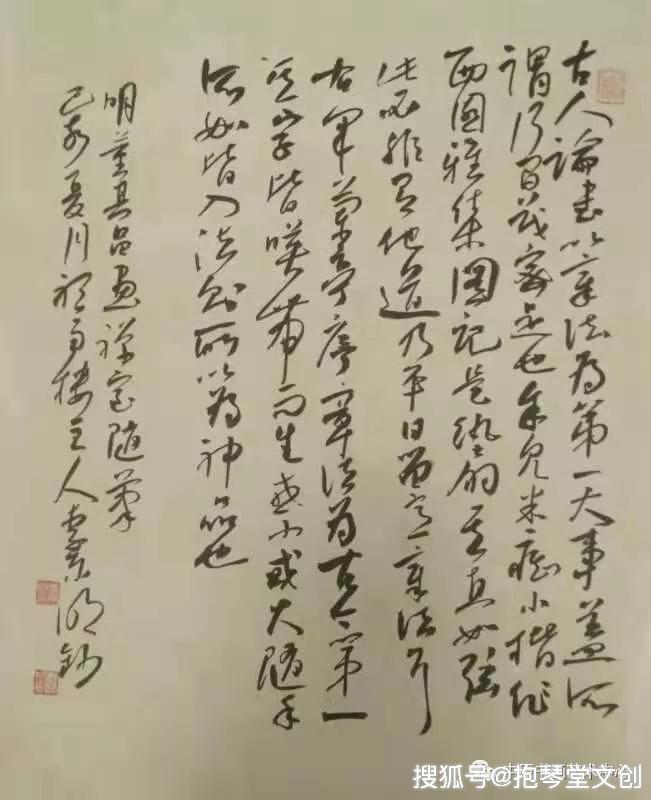 古人論書以章法為第一大事蓋所
謂行間茂密是也余見米癡小楷作
西園雅集圖記是紈扇其直如弦
此必非有他道乃平日留意章法耳
右軍蘭亭序章法為古今第一
其字皆映帶而生或小或大隨手
所如皆入法則所以為神品也
明董其昌畫禪室隨筆
己亥夏月樓主人
搜狐号@抱琴堂文创